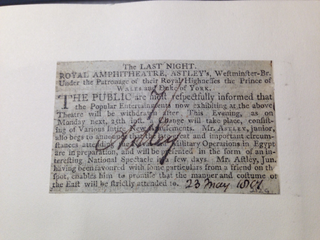 The LAST NIGHT.
ROYAL AMPHITHEATRE, ASTLEY's, Westminster-Br.
Under the Patronage of their Royal Highnesses the Prince of
WALES and Duke of YORK.
THE PUBLIC are most respectfully informed that
the Popular Entertainments now exhibiting at the above
Theatre will be withdrawn after This Evening, as on
Monday next, 25th inst. a Change will take place, consist-
ing of Various entire New Amusements. Mr. ASTLEY, junior,
also begs to announce that the great and important circum-
stances attending the Military Operations in Egypt
are in preparation, and will be presented in the form of an in-
teresting National Spectacle in a few days. Mr. Astley, Jun.
having been favoured with some particulars from a friend on the
spot, enables him to promise that the manner and costume of
the East will be strictly attended to.
23 May 1801
Astley